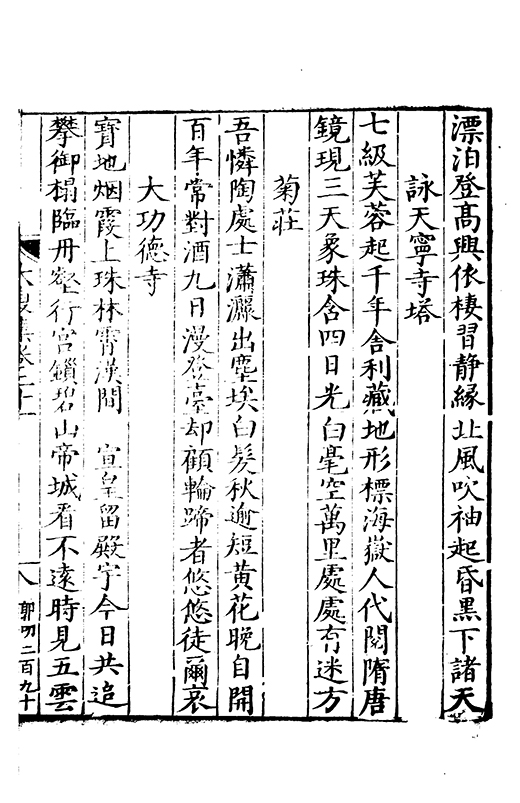 漂泊登髙興依棲習静縁北風吹袖起昏黒下諸天
詠天寧寺塔
七級芙蓉起千年舎利藏地形標海嶽人代閱隋唐
鏡現三天象珠含四日光白毫空萬里處處有迷方
菊莊
吾憐陶處士瀟灑出塵埃白髮秋逾短黄花晚自開
百年常對酒九日漫登臺却顧輪蹄者悠悠徒爾哀
大功德寺
寳地烟霞上珠林霄漢間 宣皇留殿宇今日共追
攀御榻臨丹壑行宫鎖碧山帝城看不逺時見五雲
集卷二十一
八
郭明二百九十